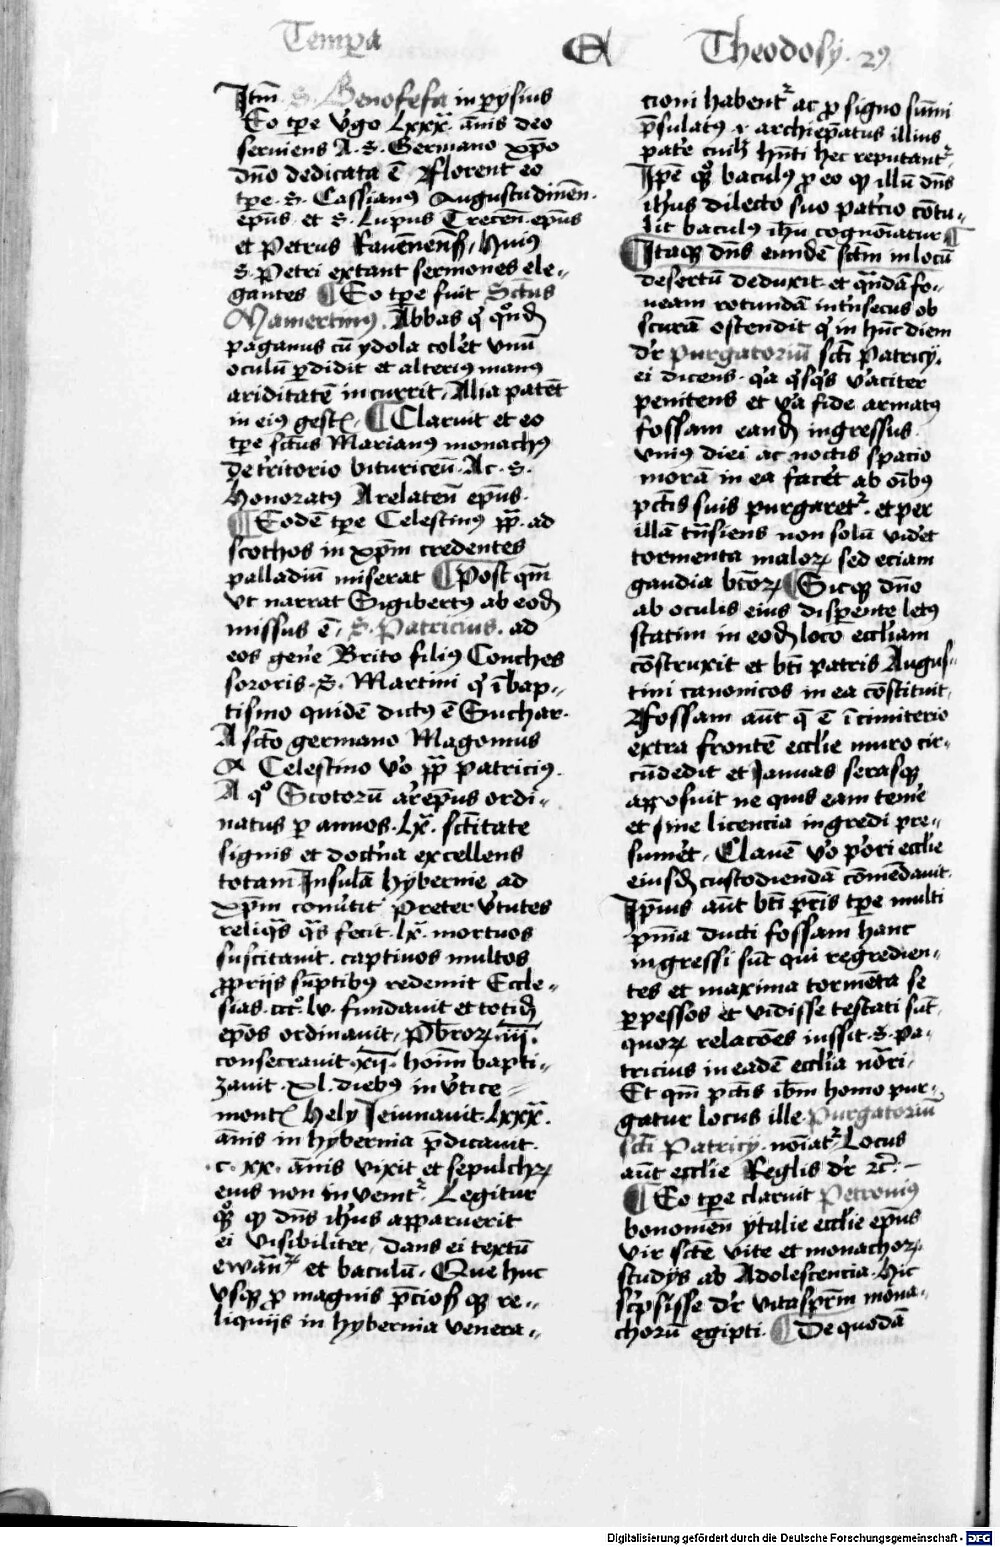 Tempa Et Theodosy. 29
Itm̄. S. Genofefa in pysius
Eo tp̄e v̾go Lxxx. ānis deo
seruiens A. S. Germano xp̄o
dn̄o dedicata ē Florent eo
tp̄e. S. Cassianꝰ Augustudinēn.
ep̄us. et S. Lupus Trecēn. ep̄us
et Petrus Rauēnēnß, Huiꝰ
S. Petri extant sermones ele-
gantes ¶ Eo tp̄e fuit Sc̄tus
Mamertinꝰ. Abbas qͥ qn̄dā
paganus cū ydola col̾et vnū
oculū ꝑdidit et alteriꝰ manꝰ
ariditatē incurrit, Alia patēt
in eiꝰ gestꝭ. ¶ Claruit et eo
tp̄e sc̄tus Marianꝰ monachꝰ
de tritorio bituriceū. Ac. S.
Honoratꝰ Arelateñ ep̄us.
¶ Eodē tp̄e Celestinꝰ pp̄. ad
scothos in xp̄m credentes
palladiū miserat ¶ Post qm̄
vt narrat Sigibertꝰ ab eodē
missus ē, S. Patricius. ad
eos gen̾e Brito filiꝰ Conches
sororis. S. Martini qͥ ī bap-
tismo quidē dictꝰ ē Suchar.
A sc̄to germano Magonius
A Celestino v̊o pp̄ patriciꝰ.
A qͦ Scotorū arep̄us ordi-
natus ꝑ annos. Lx. sc̄titate
signis et doct̾na excellens
totam Insulā hybernie ad
xp̄m conu̾tit Preter v̾tutes
reliqͣs qͣs fecit. lx. mortuos
suscitauit. captiuos multos
ꝓprijs sūptibꝰ redemit Eccle-
sias. ccc. lv. fundauit et totid̄
ep̄os ordinauit, Pb̄roꝝ. iii.
consecrauit. xii. hoīm bapti-
zauit. xl. diebꝰ in v̾tice
montꝭ Hely Ieiunauit. Lxxx.
ānis in hybernia p̄dicauit.
c. xx. ānis vixit et sepulchꝝ
eius non inuenitᷣ. Legitur
qͦꝫ ꝙ dn̄s ih̄us apparuerit
ei visibiliter, dans ei textū
ewāꝝ et baculū. Que huc
vsqꝫ ꝓ magnis p̄ciosß qꝫ re-
liquijs in hybernia venera-
cioni habentᷣ ac ꝓ signo sūmi
p̄sulatꝰ ⁊ archiep̄atus illius
pat̾e cuil̾ hn̄ti hec reputantᷣ
Ip̄e qͦꝫ baculꝰ ꝓ eo ꝙ illū dn̄s
ih̄us dilecto suo pat̾cio cōtu-
lit baculꝰ ih̄u cognoīatur ¶
Itaqꝫ dn̄s eundē sc̄tm in locū
desertū deduxit. et qͣndā fo-
ueam rotundā int̾nsecus ob
scurā ostendit qͥ in hn̄c diem
d̾r purgatoriū sc̄ti Patricy.
ei dicens. qͥa qͥsqͥs v̾aciter
penitens et v̾a fide armatꝰ
fossam eandē ingressus
vniꝰ diei ac noctis spacio
morā in ea facet ab oībꝰ
pc̄tis suis purgaretᷣ. et per
illā trāsiens non solū vid̾et
tormenta maloꝝ sed eciam
gaudia bt̄oꝝ ¶ Sicqꝫ dn̄o
ab oculis eius disꝑente letꝰ
statim in eodē loco eccl̾iam
cōstruxit et bt̄i patris Augus-
tini canonicos in ea cōstituit,
Fossam aūt q̄ ē ī cimiterio
extra frontē eccl̾ie muro cir-
cūdedit et Ianuas serasqꝫ
apposuit ne quis eam tem̾e
et sine licencia ingredi pre-
sumet, Clauē v̊o p̾ori eccl̾ie
eiusdē custodiendā cōmēdauit.
Ip̄ius aūt bt̄i pr̄is tp̄e multi
pn̄ia ducti fossam hanc
ingressi sūt qui regredien-
tes et maxima tormēta se
ꝑpessos et vidisse testati sūt,
quoꝝ relacōes iussit. S. Pa-
tricius in eadē eccl̾ia nōri.
Et qm̄ pc̄tis ib̄m homo pur-
gatur locus ille purgatoriū
sc̄ti Patricy. noīatᷣ Locus
aūt eccl̾ie Reglis d̾r ⁊c̄.
¶ Eo tp̄e claruit Petroniꝰ
bononieñ ytalie eccl̾ie ep̄us
vir sc̄te vite et monachoꝝ
studijs ab Adolescencia. Hic
sc̾psisse d̾r vitaspr̄m mona-
chorū egipti. ¶ De quodā